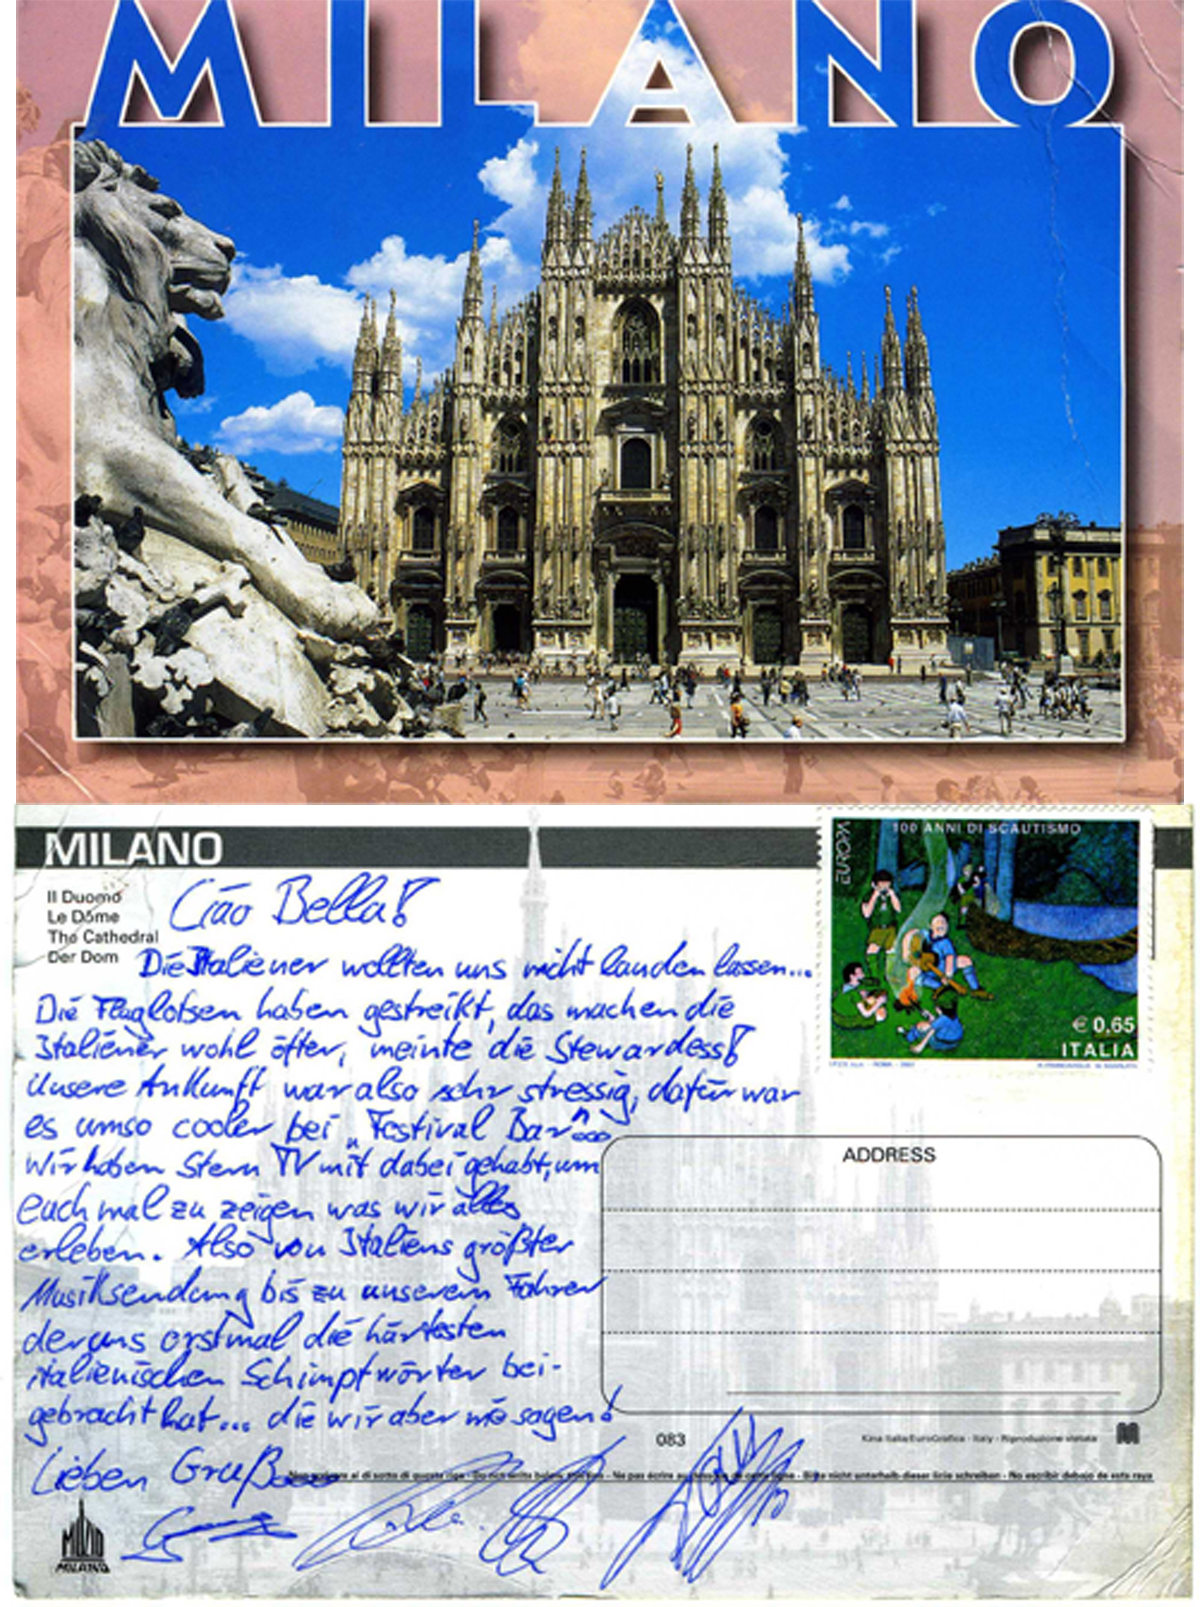 MILANO
MILANO
Il Duomo
Le Dôme
The Cathedral
Der Dom
Ciao Bella!
Die Italiener wollten uns nicht landen lassen...
Die Fluglotsen haben gestreikt, das machen die
Italiener wohl öfter, meinte die Stewardess!
Unsere Ankunft war also sehr stressig, dafür war
es umso cooler bei „Festival Bar"...
Wir haben Stern TV mit dabei gehabt, um
euch mal zu zeigen was wir alles
erleben. Also von Italiens größter
Musiksendung bis zu unserem Fahrer
der uns erstmal die härtesten
italienischen Schimpfwörter bei-
gebracht hat... die wir aber nie sagen!
Lieben Gruß...
EUROPA
100 ANNI DI SCAUTISMO
€ 0,65
ITALIA
ADDRESS
083
Kina Italia/EuroGrafica - Italy - Riproduzione vietata
M
Non scrivere al di sotto di questa riga - Do not write below this line - Ne pas écrire au dessous de cette ligne - Bitte nicht unterhalb dieser linie schreiben - No escribir debajo de esta raya
MUZIO
MILANO